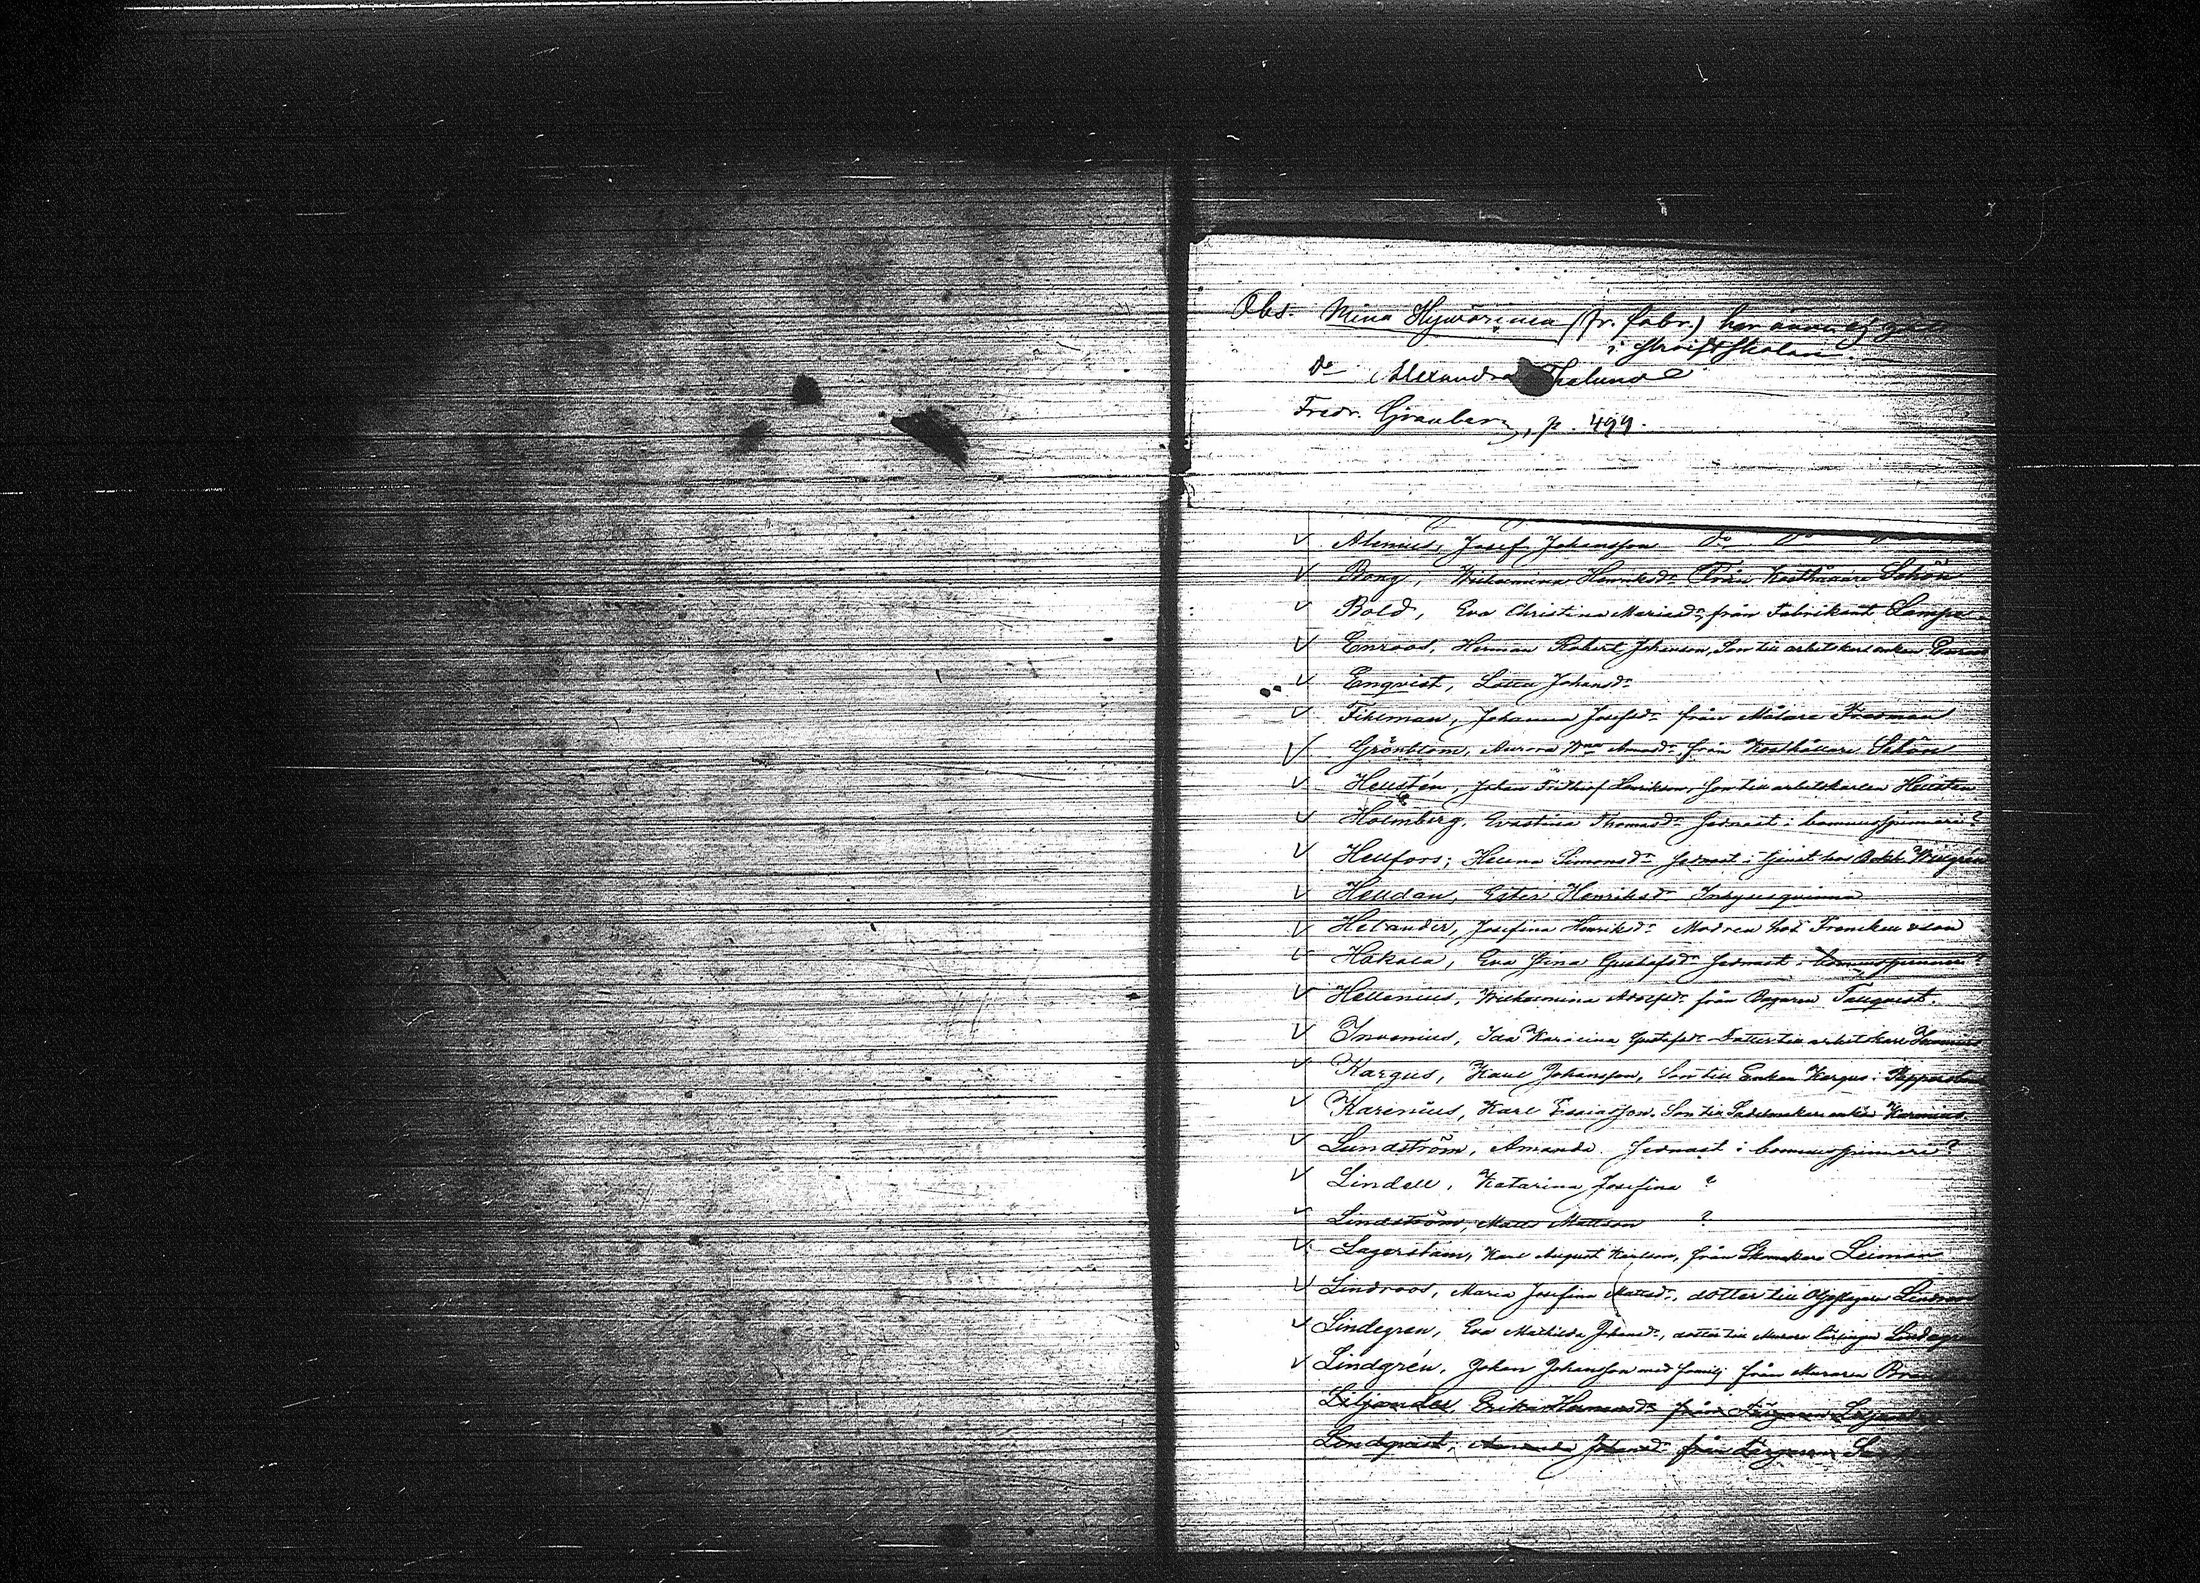 Obs. Mina Hyvärinen (fr. fabr.) har ännu ej gått
i skriftskolan.
do Alexandra Thelund
Fredr. Granberg, p. 499.
✓ Alenius, Josef Johansson do do do
✓ Bong, Wilhelmina Henriksdr från Kosthållare Schön
✓ Bold, Eva Christina Mariasdr, från Fabrikant Lampe
✓ Enroos, Herman Robert Johansson, Son till arbetskarlsenkan Enroos
✓ Enqvist, Lotta Johansdr
✓ Fihlman, Johanna Josefsdr från Målare Fredman
✓ Grönblom, Aurora från Kosthållare Schön
✓ Hellstén, Johan Fridthiof Henrikson, Son till arbetskarlen Hellsten
✓ Holmberg, Evastina Thomasdr sednast i bomullsspinneri?
✓ Hellfors, Helena Simonsdr sednast i tjenst hos
✓ Helldan, Ester Henriksdr Inhysesqvinna
✓ Helander, Josefina Henriksdr Modren hos Frenckell & son
✓ Hakala, Eva Stina Gustafsdr sednast i bomullsspinneri?
✓ Hellenius, Wilhelmina Adolfsdr från Bagaren Tallqvist.
✓ Invenius, Ida Karolina Gustafsdr Dotter till arbetskarl Invenius
✓ Kargus, Karl Johansson, Son till Enkan Kargus i
✓ Karenius, Karl Esaiasson, Son till Sadelmakare enkan Karenius
✓ Lundström, Amanda sednast i bomullsspinneri?
✓ Lindell, Katarina Josefina ?
✓ Lindström, Matts Mattson ?
✓ Lagerstam, Karl August Karlson, från Skomakare Leiman
✓ Lindroos, Maria Josefina Mattsdr, dotter till Lindroos
✓ Lindegren, Eva Mathilda Johansdr, dotter till Murare lärlingen Lindegren
✓ Lindgrén, Johan Johansson med familj från Muraren
Liljander Erika Hermansdr från Färgaren Liljander
Lindqvist, Amanda Johansdr från Färgaren